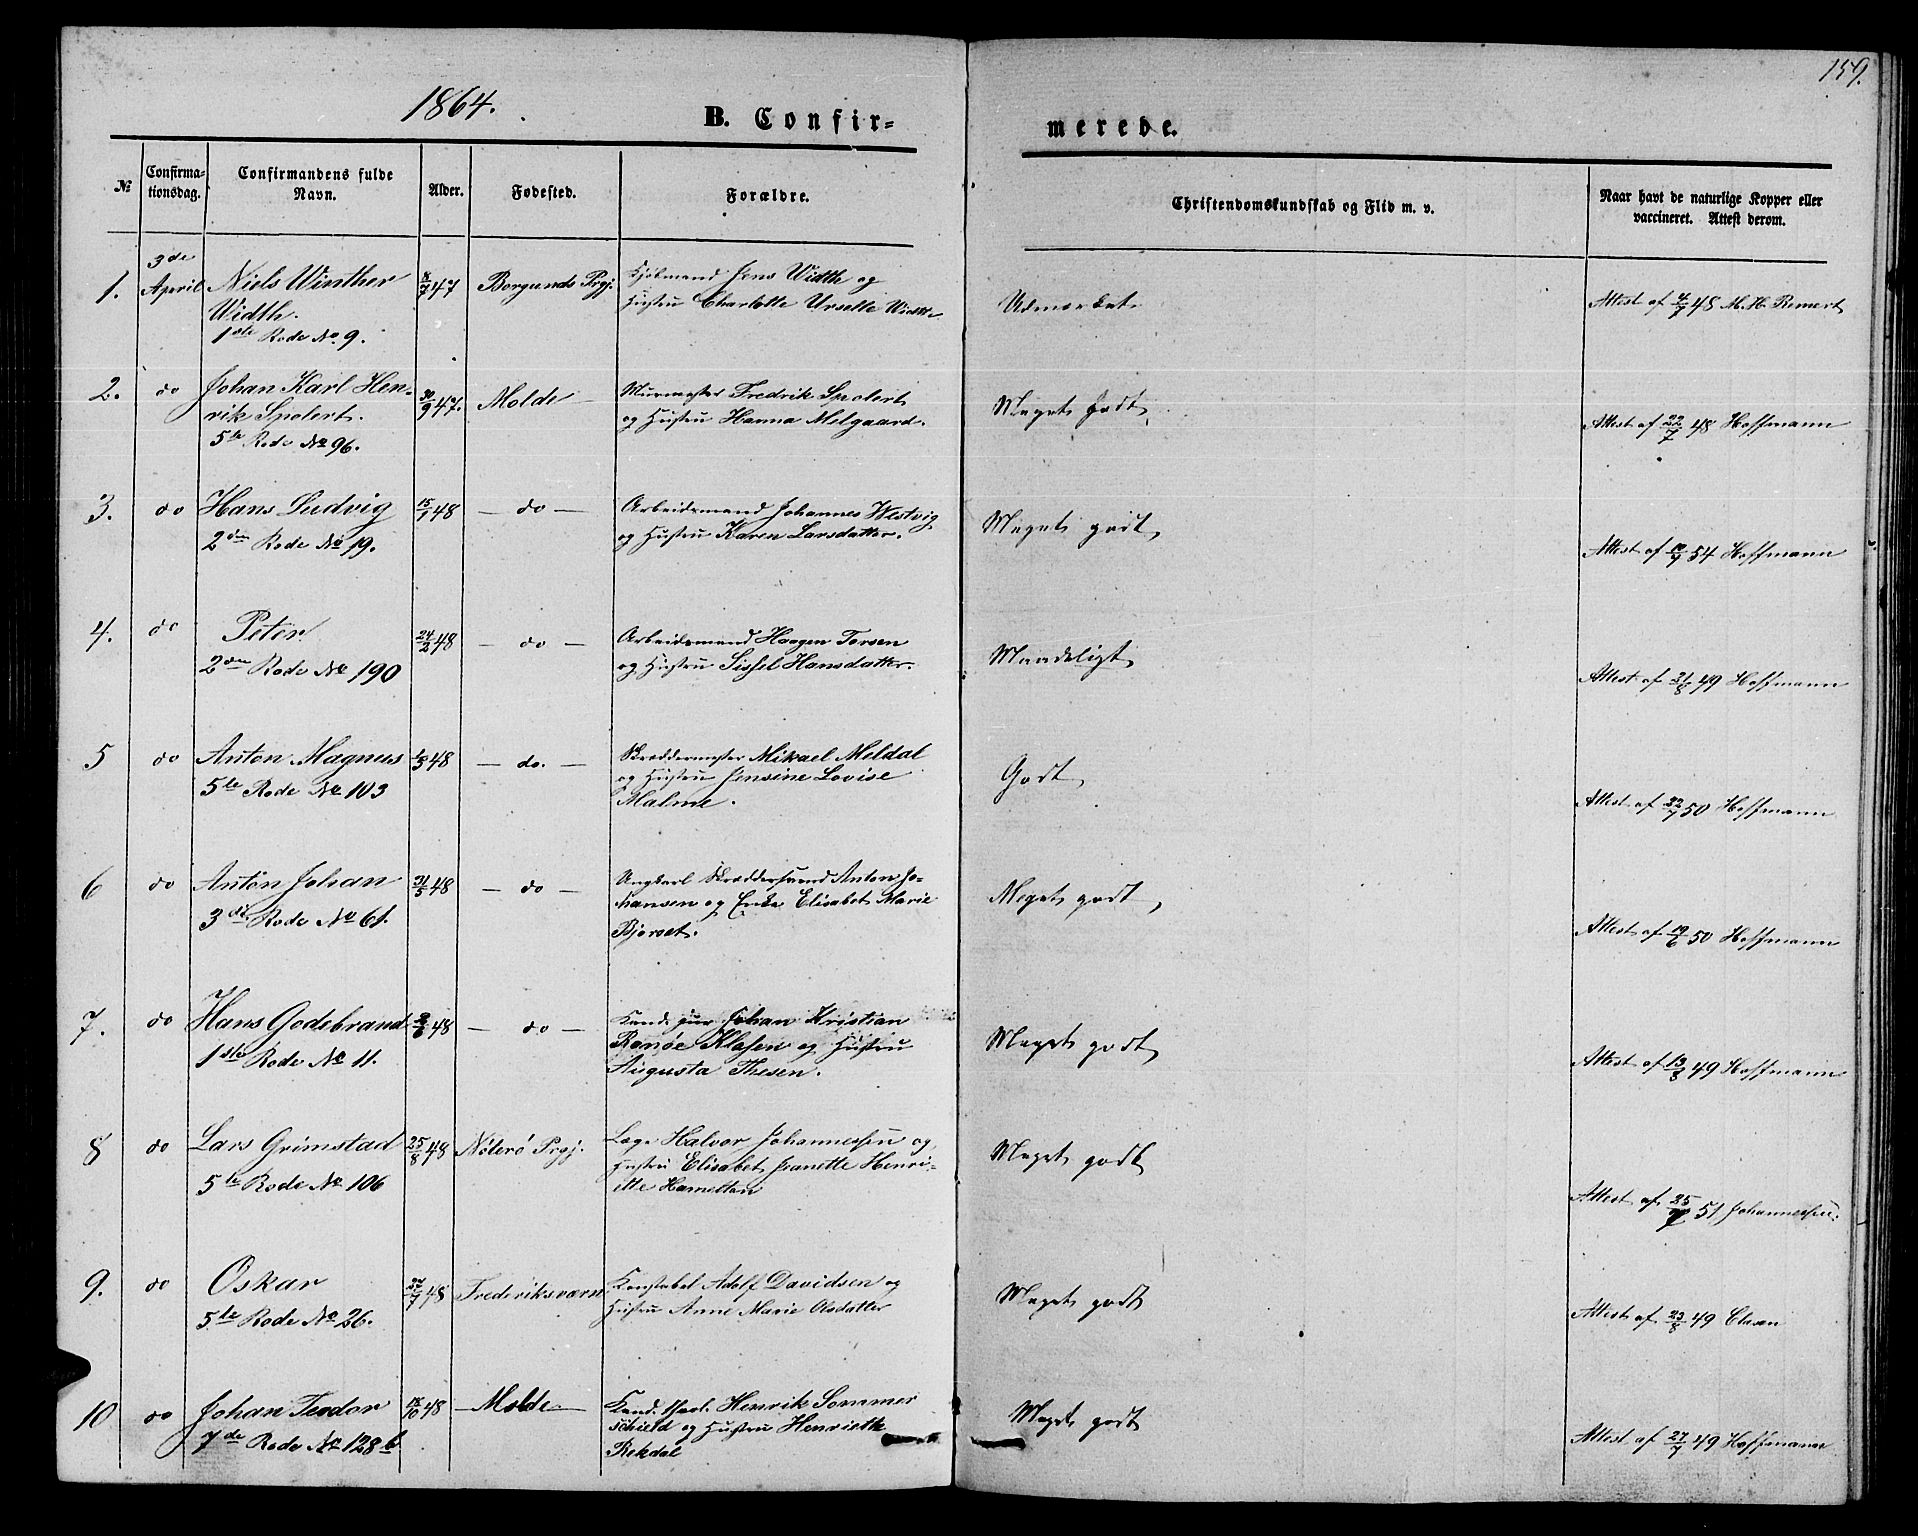 159.
1864.
B. Confirmerede.
№
Confirmationsdag.
Confirmandens fulde Navn.
Alder.
Fødested.
Forældre.
Christendomskundskab og Flid m. v.
Naar havt de naturlige Kopper eller vaccineret. Attest derom.
1.
3de April
Niels Winther
Width.
1ste Rode No 9.
8/7 47
Borgunds Prgj.
Jens Width og
Hustru Charlotte Urselle Width
Udmærket
Attest af 4/7 48 M. H. Remert
2.
do
Johan Karl Hen-
rik Spolert.
5te Rode No 96.
30/9 47.
Molde
Murmester Fredrik Spolert
og Hustru Hanna Melgaard.
Meget godt
Attest af 22/7 48 Hoffmann
3.
do
Hans Ludvig
2den Rode No 19.
15/1 48
— do —
Arbeidsmand Johannes Westvig
og Hustru Karen Larsdatter.
Meget godt
Attest af 54 Hoffmann
4.
do
Peter
2den Rode No 190
24/2 48
— do —
Arbeidsmand Haagen Torsen
og Hustru Sissel Hansdatter.
Maadeligt
Attest af 31/8 49 Hoffmann
5
do
Anton Magnus
5te Rode No 103
48
— do. —
Skræddermester Mikael Meldal
og Hustru Jensine Lovise
Malme.
Godt
Attest af 22/7 50 Hoffmann
6
do
Anton Johan
3die Rode No 61.
31/5 48
— do —
Ungkarl Skræddersvend Anton Jo-
hansen og Enke Elisabet Marie
Bjørset.
Meget godt
Attest af 19/6 50 Hoffmann
7.
do
Hans Godebrand
1ste Rode No 11.
2/6 48
— do —
Kand. jur Johan Kristian
Rønøe Klasen og Hustru
Augusta Thesen.
Meget godt
Attest af 13/8 49 Hoffmann
8
do
Lars Grimstad
5te Rode No 106
25/8 48
Nøterø Prgj.
Læge Halvor Johannessen og
Hustru Elisabet Jeanette Henri-
ette Hamelton
Meget godt
Attest af 25/7 51 Johannessen.
9.
do
Oskar
5te Rode No 26.
22/7 48
Frederiksværn
Konstabel Adolf Davidsen og
Hustru Anne Marie Olsdatter
Meget godt
Attest af 23/8 49 Clasen
10
do
Johan Teodor
7de Rode No 128 b.
48
— Molde —
Kand. theol. Henrik Sommer
schield og Hustru Henriette
Rekdal
Meget godt
Attest af 27/7 49 Hoffmann